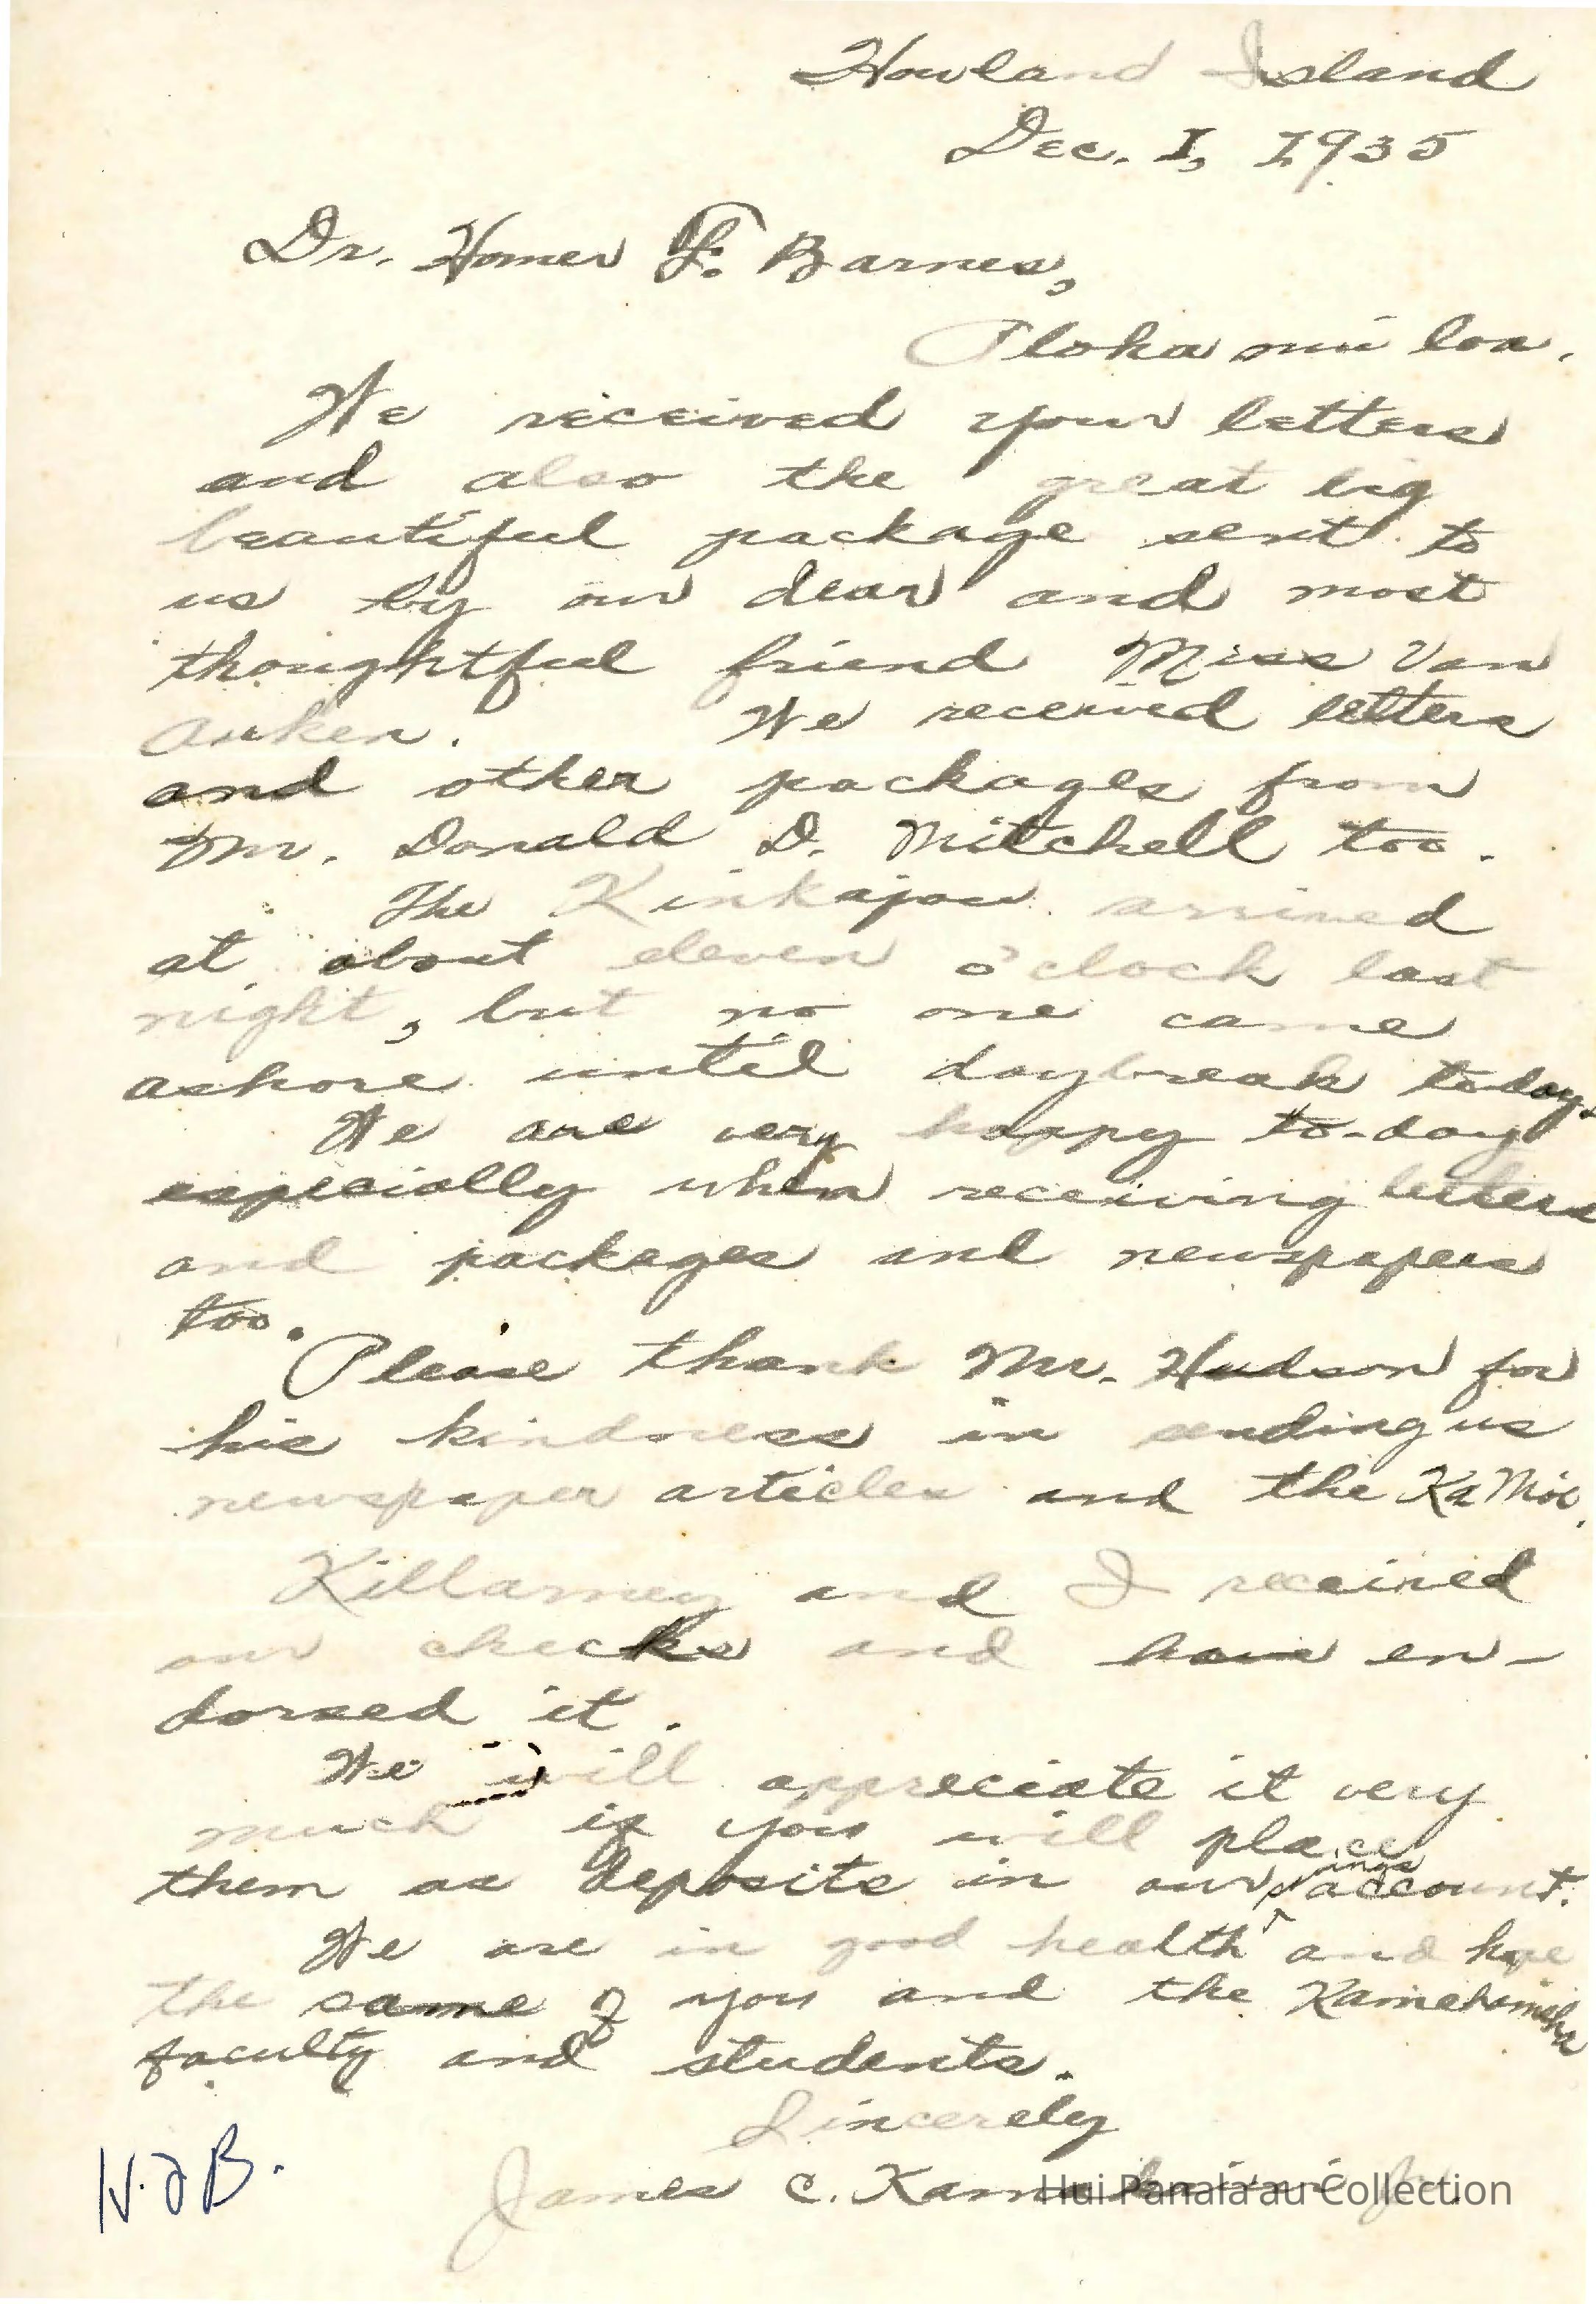 Howland Island
Dec. 1, 1935
Dr. Homer F. Barnes,
Aloha nui loa.
We received your letters
and also the great big
beautiful package sent to
us by our dear and most
thoughtful friend Miss Van
Auken. We received letters
and other packages from
Mr. Donald D. Mitchell too.
The Kinkajou arrived
at about eleven o'clock last
night, but no one came
ashore until daybreak today.
We are very happy to-day
especially when receiving letters
and packages and newspapers
too.
Please thank Mr. Hudson for
his kindness in sending us
newspaper articles and the Ka Moi.
Killarney and I received
our checks and have en-
dorsed it.
We will appreciate it very
much if you will place
them as deposits in our savings account.
We are in good health and hope
the same of you and the Kamehameha
faculty and students.
Sincerely
James C. Kamakaiwi Jr.
H.F.B.
Hui Panalāʻau Collection